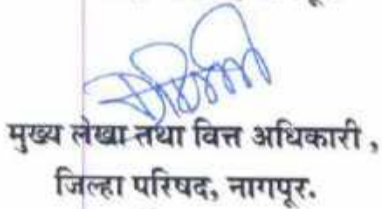 मुख्य लेखा तथा वित्त अधिकारी ,
जिल्हा परिषद, नागपूर.